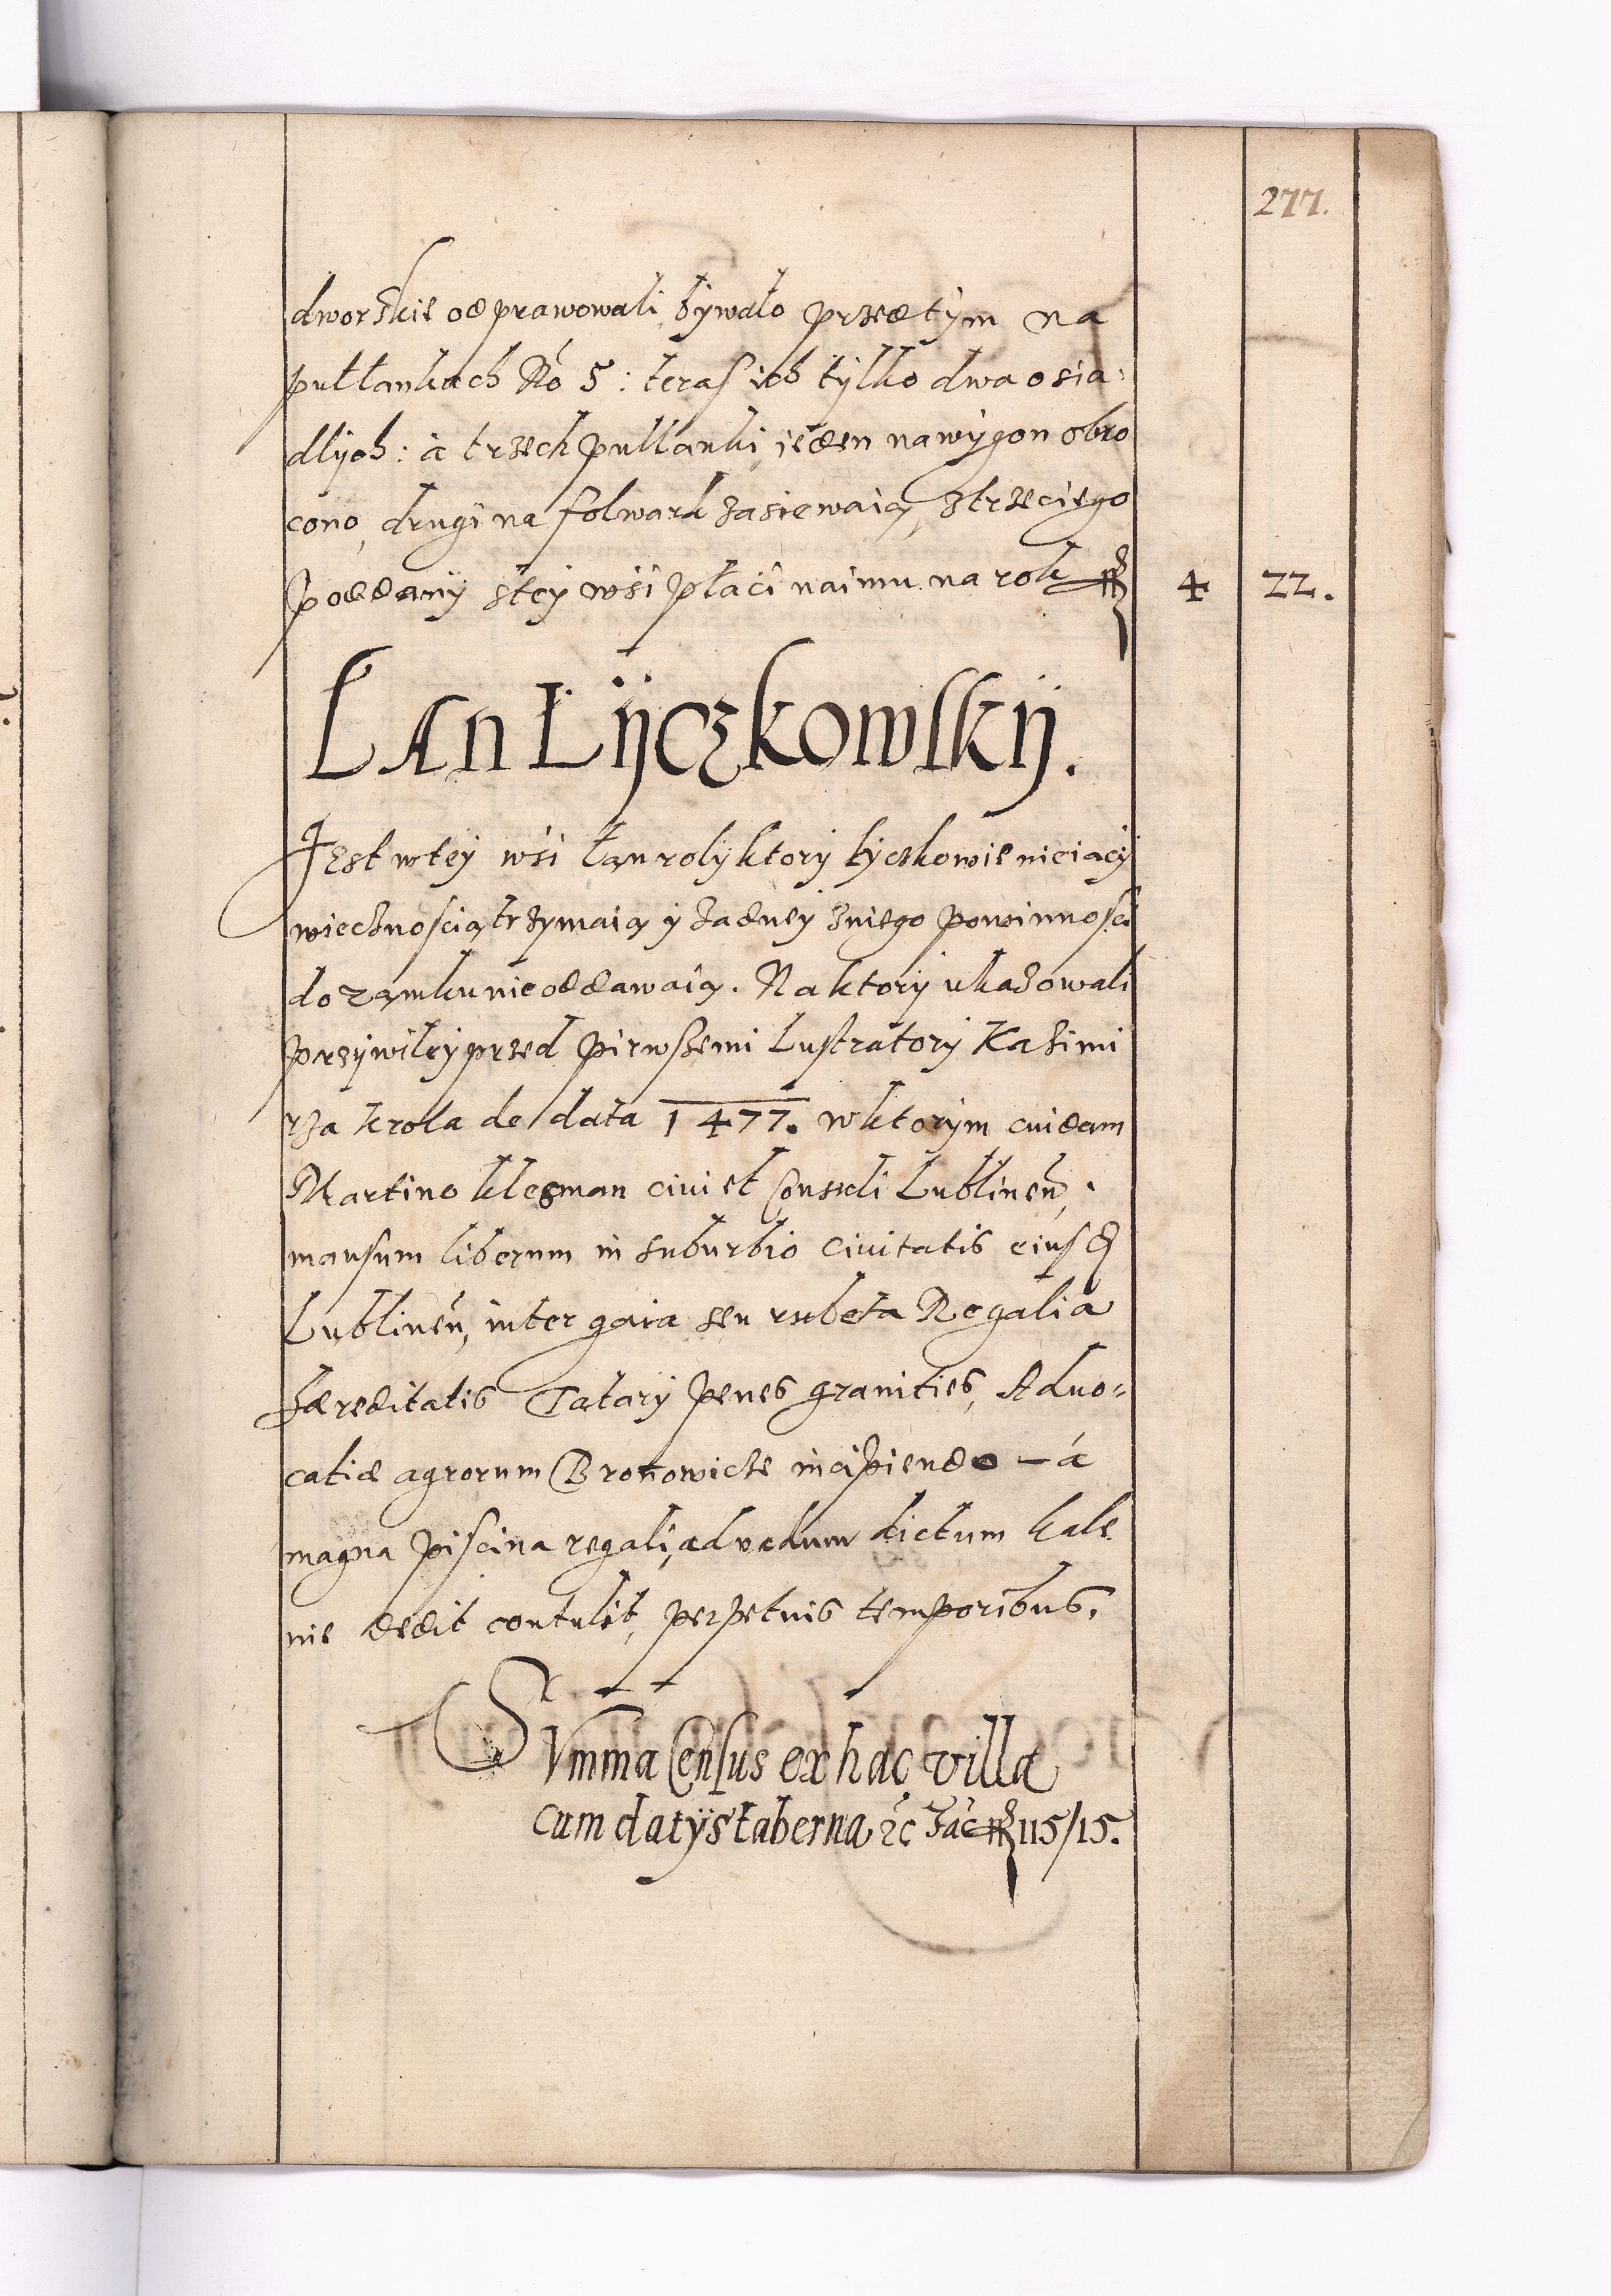 277.
dworskie odprawowali, bywało przedtym na
pułłankach No 5 : teras ich tylko dwa osia-
dlych : à trzech pułłanki, ieden na wygon obro
cono, drugi na folwark zasiewaią, z trzeciego
poddany s tey wsi płaci naimu na rok 4 22.
Łan Łyczkowsky.
Jest w tey wsi łan roly ktory Łyczkowie nieiacy
wiecznoscią trzymaią y żadney z niego powinnosci
do zamku nie oddawaią. Na ktory ukazowali
przywiley przed pirwszemi Lustratory Kazimi
rza krola de data 1477. w ktorym cuidam
Martino Klesman civi et Consuli Lublinen̄,
mansum liberum in suburbio civitatis eiusd
Lublinen̄, inter gaia seu rubeta Regalia
hæreditatis Tatary penes granities, Aduo-
catiæ agrorum Bronowicze incipiendo – á
magna piscina regali, ad vadum dictum kale
nie dedit contulit, perpetuis temporibus.
Sum̄ma Cen̄sus ex hac villa
cum datijs taberna &c fac 115/15.